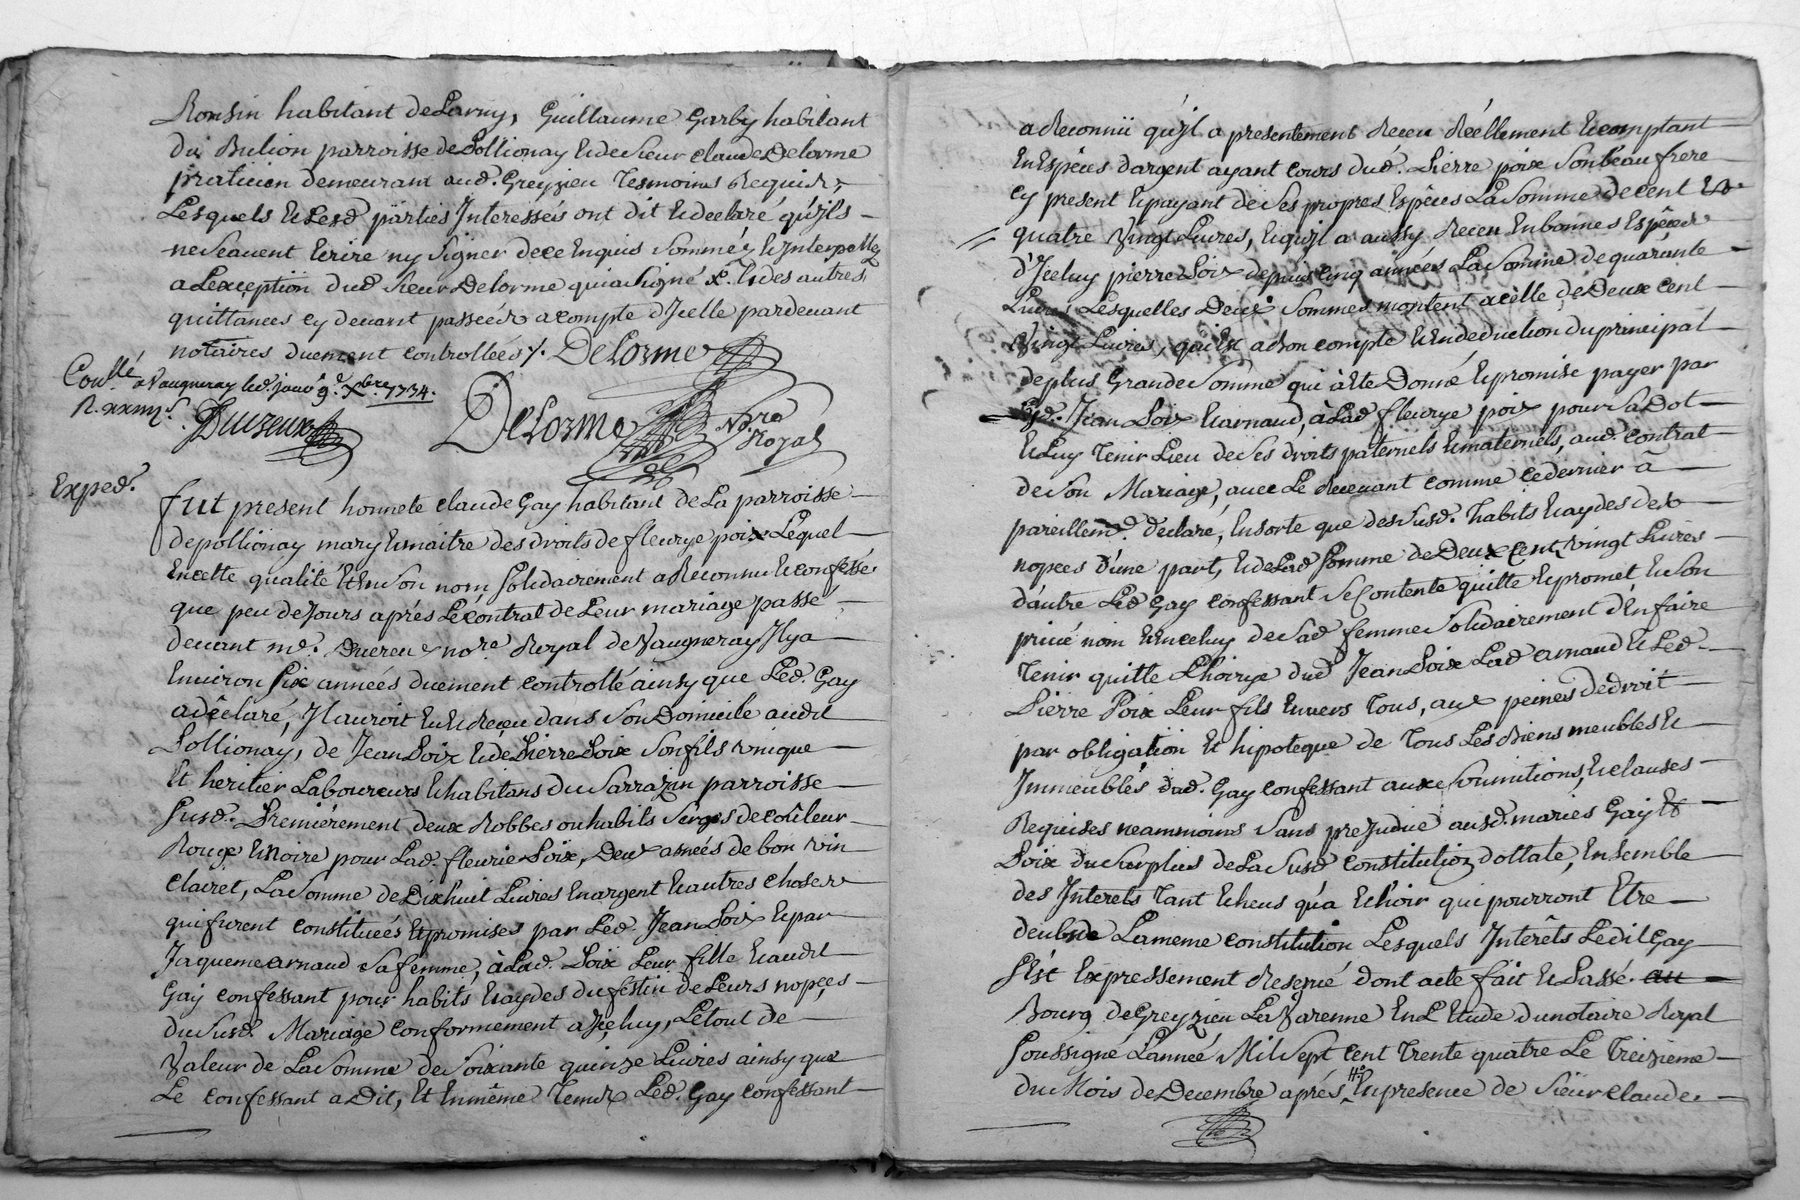 Ronsin habitant de Larny, Guillaume Garby habitant
du Bulion parroisse de Pollionay et de sieur claude Delorme
praticien demeurant aud. Greyzieu tesmoins Requis,
Lesquels et Lesd parties Interessés ont dit et declaré qu'ils
ne seavent Ecrire ny signer de ce Enquis sommés et Interpellez
a Lexception dud sieur Delorme qui a signé x. et des autres
quittances cy devant passées a compte d'Icelle pardevant
notaires duement controllées /. Delorme
Conllé a Vaugneray led. jour 9e. Xbre 1734.
R. xxiiij s.
Ducreux
Delorme Nre Royal
Exped.
Fut present honnete claude Gay habitant de La parroisse
de pollionay mary et maitre des droits de fleurye poix Lequel
En cette qualité et En son nom solidairement a Reconnu et confessé
que peu de Jours aprés Le contrat de Leur mariage passé
devant me. Ducreux nore Royal de Vaugneray Il y a
Environ six années duement controllé ainsy que Led. Gay
a déclaré, Il auroit Eu et Receu dans son Domicile audit
Pollionay, de Jean Poix et de Pierre Poix son fils unique
Et heritier Laboureurs et habitans du Sarrazin parroisse
susd. Premiérement deux Robbes ou habits serges de coûleur
Rouge et Noire pour Lad. fleurie Poix, Deux asnées de bon vin
clairet, La somme de Dixhuit Livres En argent et autres choses
qui furent constituées et promises par Led. Jean Poix et par
Jaqueme arnaud sa femme, à Lad. Poix Leur fille et audit
Gay confessant pour habits et aydes du festin de Leurs nopces
du susd. Mariage conformement a Iceluy, Le tout de
Valeur de La somme de soixante quinze Livres ainsy que
Le confessant a Dit, Et En même Tems Led. Gay confessant
a Reconnü qu'il a presentement Receu Réellement et comptant
En Espéces d'argent ayant cours dud. Pierre poix son beau frere
cy present et payant de ses propres Espéces La somme de cent et
quatre vingt Livres, et qu'il a aussy Receu En bonnes Espéces
d'Iceluy pierre Poix depuis cinq années La somme de quarante
Livres Lesquelles Deux sommes montent a celle de Deux cent
vingt Livres, qui Est a bon compte et En deduction du principal
de plus Grande somme qui a Eté Donné et promise payer par
Lesd. Jean Poix et arnaud, à Lad fleurye poix pour sa Dot
et Luy Tenir Lieu de ses droits paternels et maternels, aud. contrat
de son Mariage, avec Le Recevant comme ce dernier a
pareillemt. declaré, En sorte que des susd. habits et aydes des
nopces d'une part, et de Lad somme de Deux cent vingt Livres
d'autre Led Gay confessant se Contente quitte et promet En son
privé nom et En celuy de sad femme solidairement d'En faire
Tenir quitte L'hoirye dud Jean Poix Lad arnaud et Led
Pierre Poix Leur fils Envers Tous, aux peines de droit
par obligation Et hipoteque de Tous Les Biens meubles et
Immeubles dud. Gay confessant aux soumitions, et clauses
Requises neammoins sans prejudice ausd. mariés Gay et
Poix du surplus de La susd constitution dottale, Ensemble
des Interets Tant Echeus qu'a Echoir qui pourront Etre
deubs de La meme constitution Lesquels Intérêts Ledit Gay
s'Est Expressement Reservé dont acte fait et Passé au
Bourg de Greyzieu La Varenne En L'Etude du notaire Royal
soussigné L'année Mil sept cent Trente quatre Le Treizieme
du Mois de Decembre aprés En presence de sieur claude